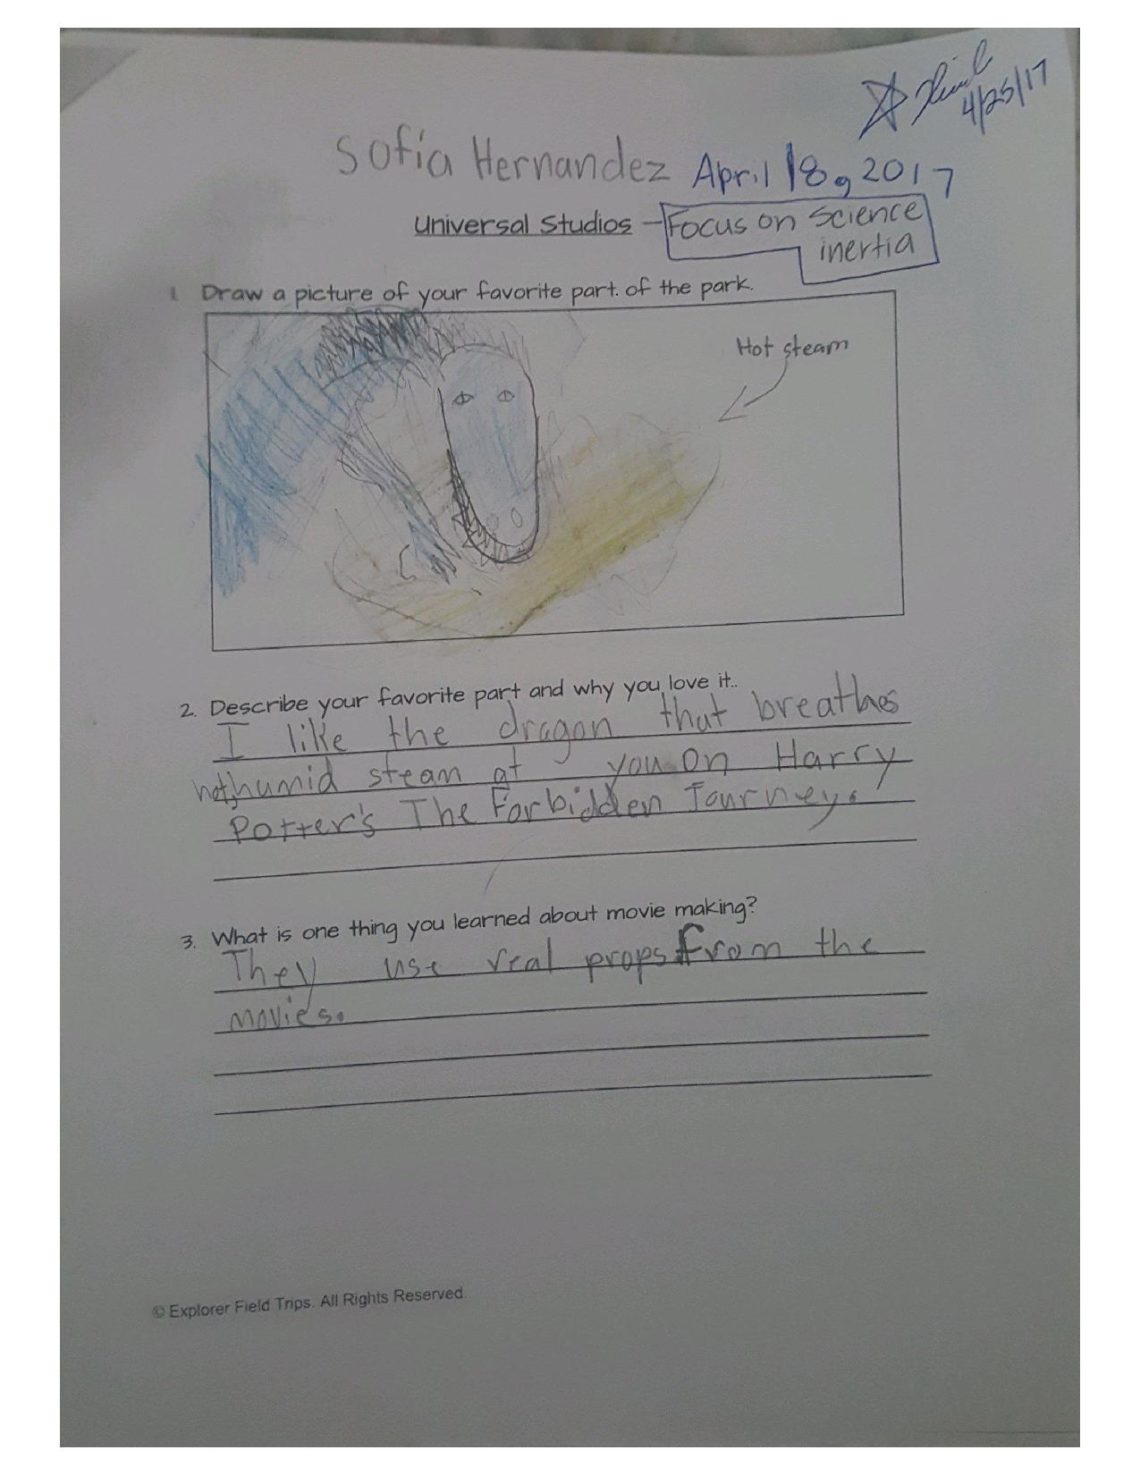 4/25/17
Sofía Hernandez April 18, 2017
Universal Studios - Focus on Science
inertia
1. Draw a picture of your favorite part of the park.
Hot steam
2. Describe your favorite part and why you love it..
I like the dragon that breathes
hot, humid steam at you on Harry
Potter's The Forbidden Journey.
3. What is one thing you learned about movie making?
They use real props from the
movies.
© Explorer Field Trips. All Rights Reserved.